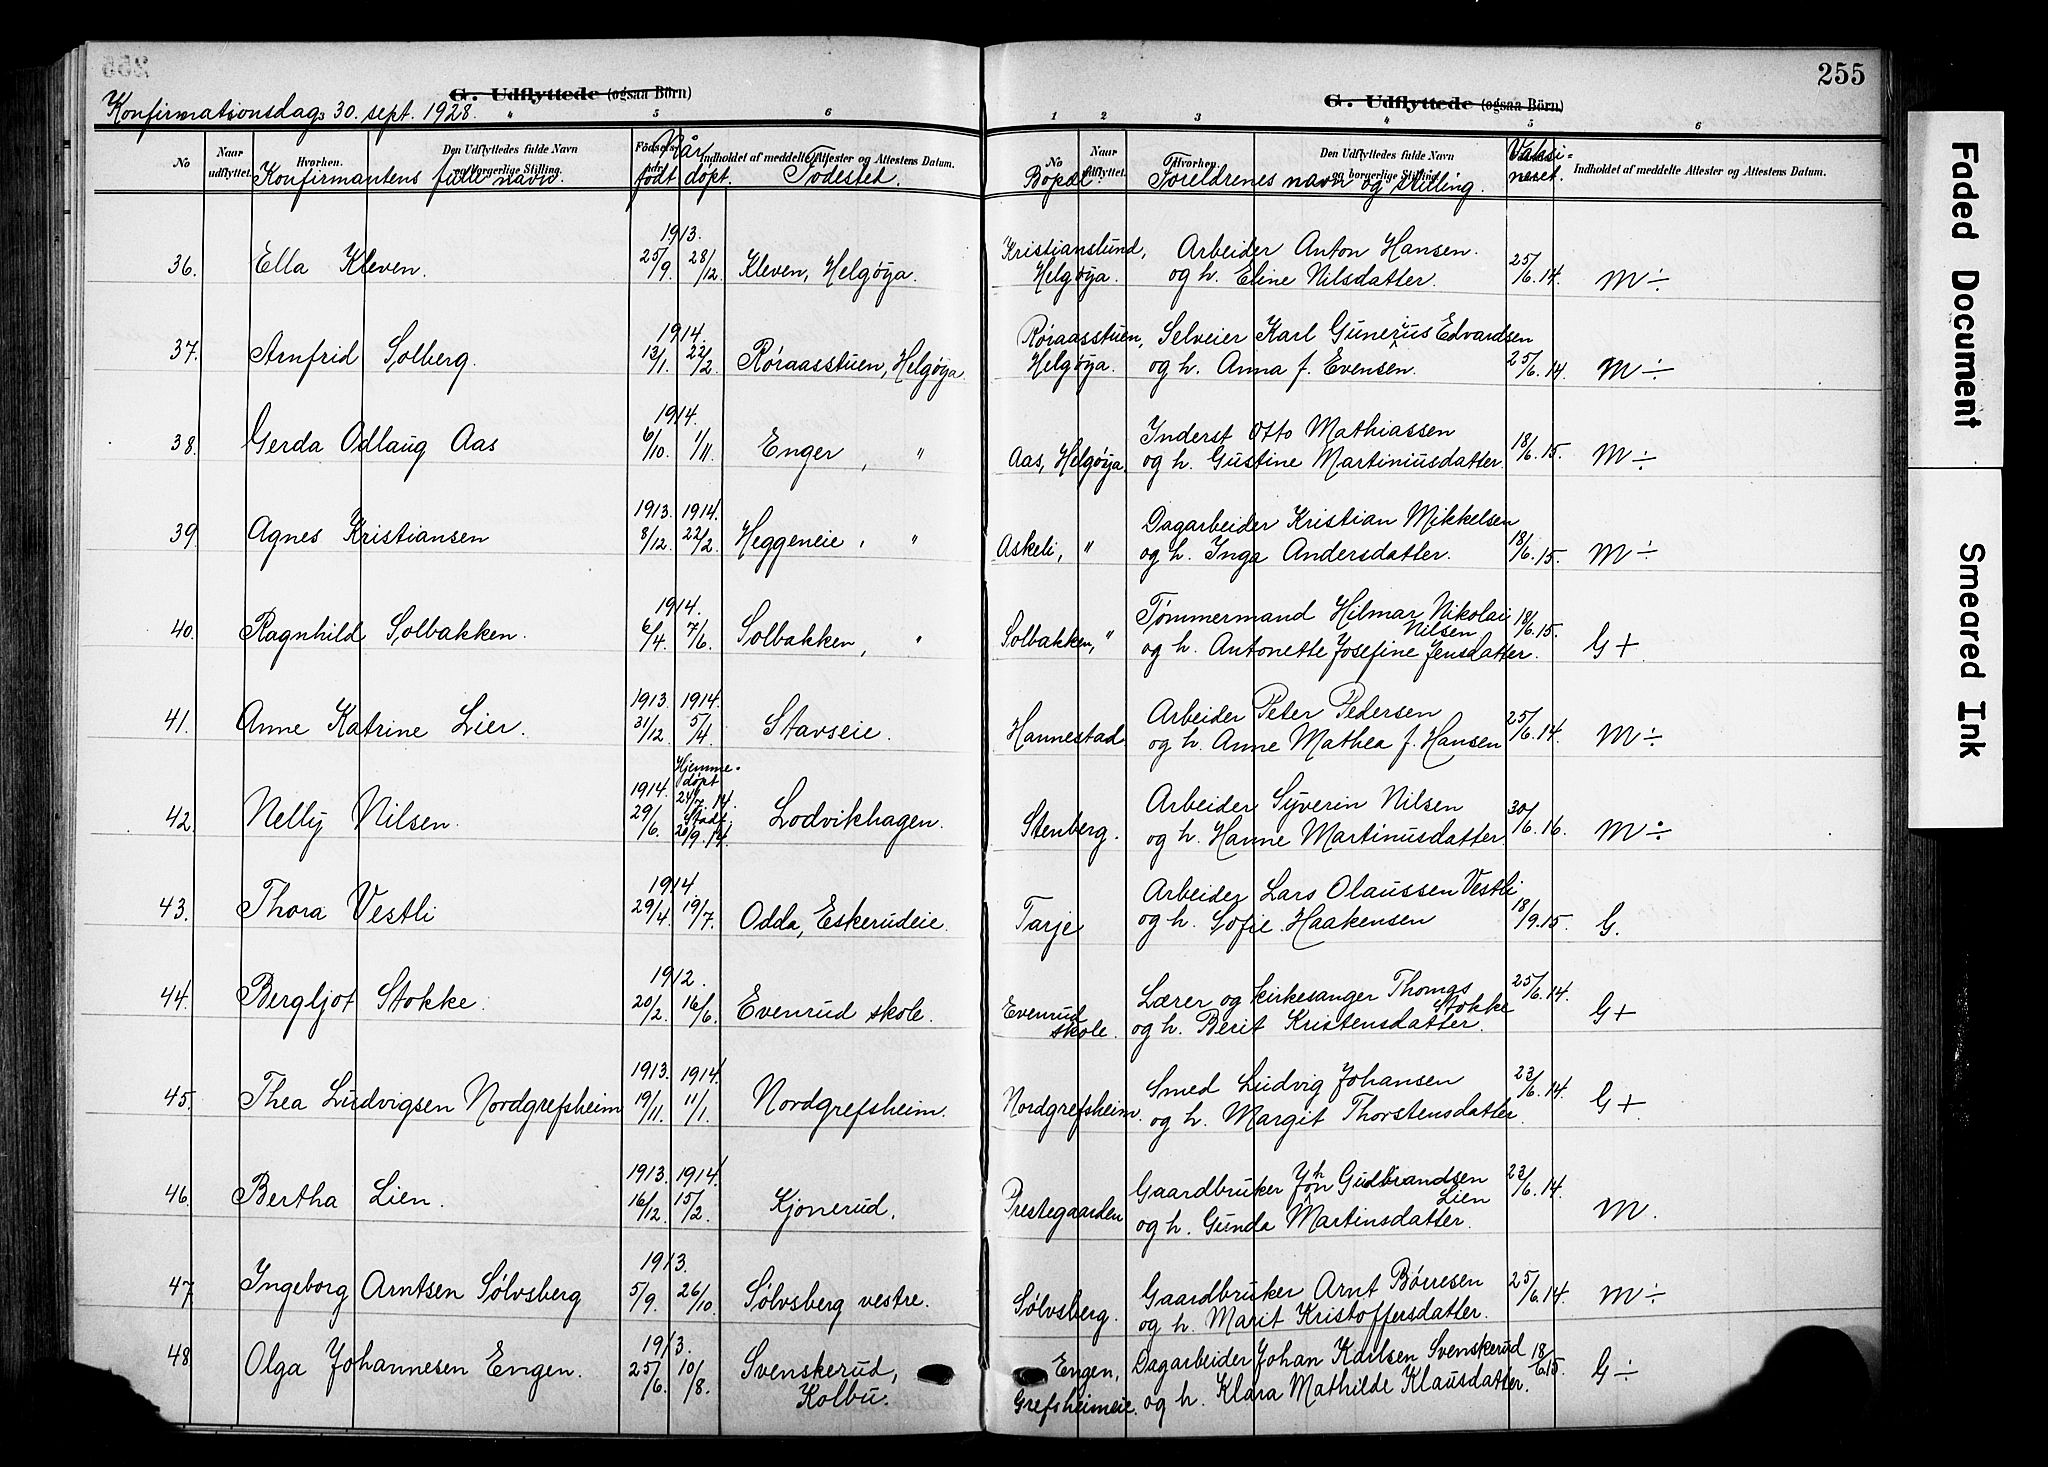 255
G. Udflyttede (ogsaa Börn)
Konfirmationsdag 30. sept. 1928.
4 5 6
No Naar udflyttet. Hvorhen. Den Udflyttedes fulde Navn og borgerlige Stilling. Fødsels- Indholdet af meddelte Attester og Attestens Datum.
Konfirmantens fulle navn. Når født døpt. Fødested.
36. Ella Kleven. 1913. 25/9. 28/12 Kleven, Helgøya.
37. Arnfrid Solberg. 1914. 13/1. 22/2 Røraasstuen, Helgøya.
38. Gerda Odlaug Aas 1914. 6/10 1/11. Enger, "
39. Agnes Kristiansen 1913. 8/12. 1914. 22/2 Heggeneie, "
40. Ragnhild Solbakken. 1914. 6/4. 7/6. Solbakken, "
41. Anne Katrine Lier. 1913. 31/12 1914. 5/4. Stavseie.
42. Nelly Nilsen. 1914. 29/6. Hjemme-døpt 24/7. 14. Stadf. 20/9. 14. Lodvikhagen.
43. Thora Vestli 1914 29/4. 19/7. Odda, Eskerudeie.
44. Bergljot Stokke. 1912. 20/2. 16/6 Evenrud skole.
45. Thea Ludvigsen Nordgrefsheim 1913. 19/11. 1914. 11/1. Nordgrefsheim.
46. Bertha Lien. 1913. 16/12. 1914. 15/2. Kjonerud.
47. Ingeborg Arntsen Sølvsberg 1913. 5/9. 26/10. Sølvsberg vestre.
48. Olga Johannesen Engen. 1913. 25/6. 10/8. Svenskerud, Kolbu.
255
G. Udflyttede (ogsaa Börn)
1 2 3 4 5 6
No Naar udflyttet. Hvorhen. Den Udflyttedes fulde Navn og borgerlige Stilling. Indholdet af meddelte Attester og Attestens Datum.
Bopæl. Foreldrenes navn og stilling. Vaksi-neset.
Kristianslund, Helgøya. Arbeider Anton Hansen. og h. Eline Nilsdatter. 25/6. 14. M ÷
Røraasstuen, Helgøya. Selveier Karl Gunerius Edvardsen og h. Anna f. Evensen. 25/6. 14. M ÷
Aas, Helgøya Inderst Otto Mathiassen og h. Gustine Martiniusdatter. 18/6. 15. M ÷
Askeli, " Dagarbeider Kristian Mikkelsen og h. Inga Andersdatter. 18/6. 15. M ÷
Solbakken, " Tømmermand Hilmar Nikolai Nilsen og h. Antonette Josefine Jensdatter. 18/6. 15. G +
Hannestad. Arbeider Peter Pedersen og h. Anne Mathea f. Hansen 25/6. 14. M ÷
Stenberg. Arbeider Syverin Nilsen og h. Hanne Martinusdatter. 30/6. 16. M ÷
Tarje Arbeider Lars Olaussen Vestli og h. Sofie Haakensen 18/9. 15. G.
Evenrud skole. Lærer og kirkesanger Thomas Stokke og h. Berit Kristensdatter. 25/6. 14. G +
Nordgrefsheim. Smed Ludvig Johansen og h. Margit Thorstensdatter. 23/6. 14. G +
Prestegaarden Gaardbruker John Gudbrandsen Lien og h. Gunda Martinsdatter. 23/6. 14. M.
Sølvsberg. Gaardbruker Arnt Børresen og h. Marit Kristoffersdatter. 25/6. 14. M ÷
Engen, Grefsheimeie. Dagarbeider Johan Karlsen Svenskerud og h. Klara Mathilde Klausdatter. 18/6 15. G ÷
Faded Document
Smeared Ink